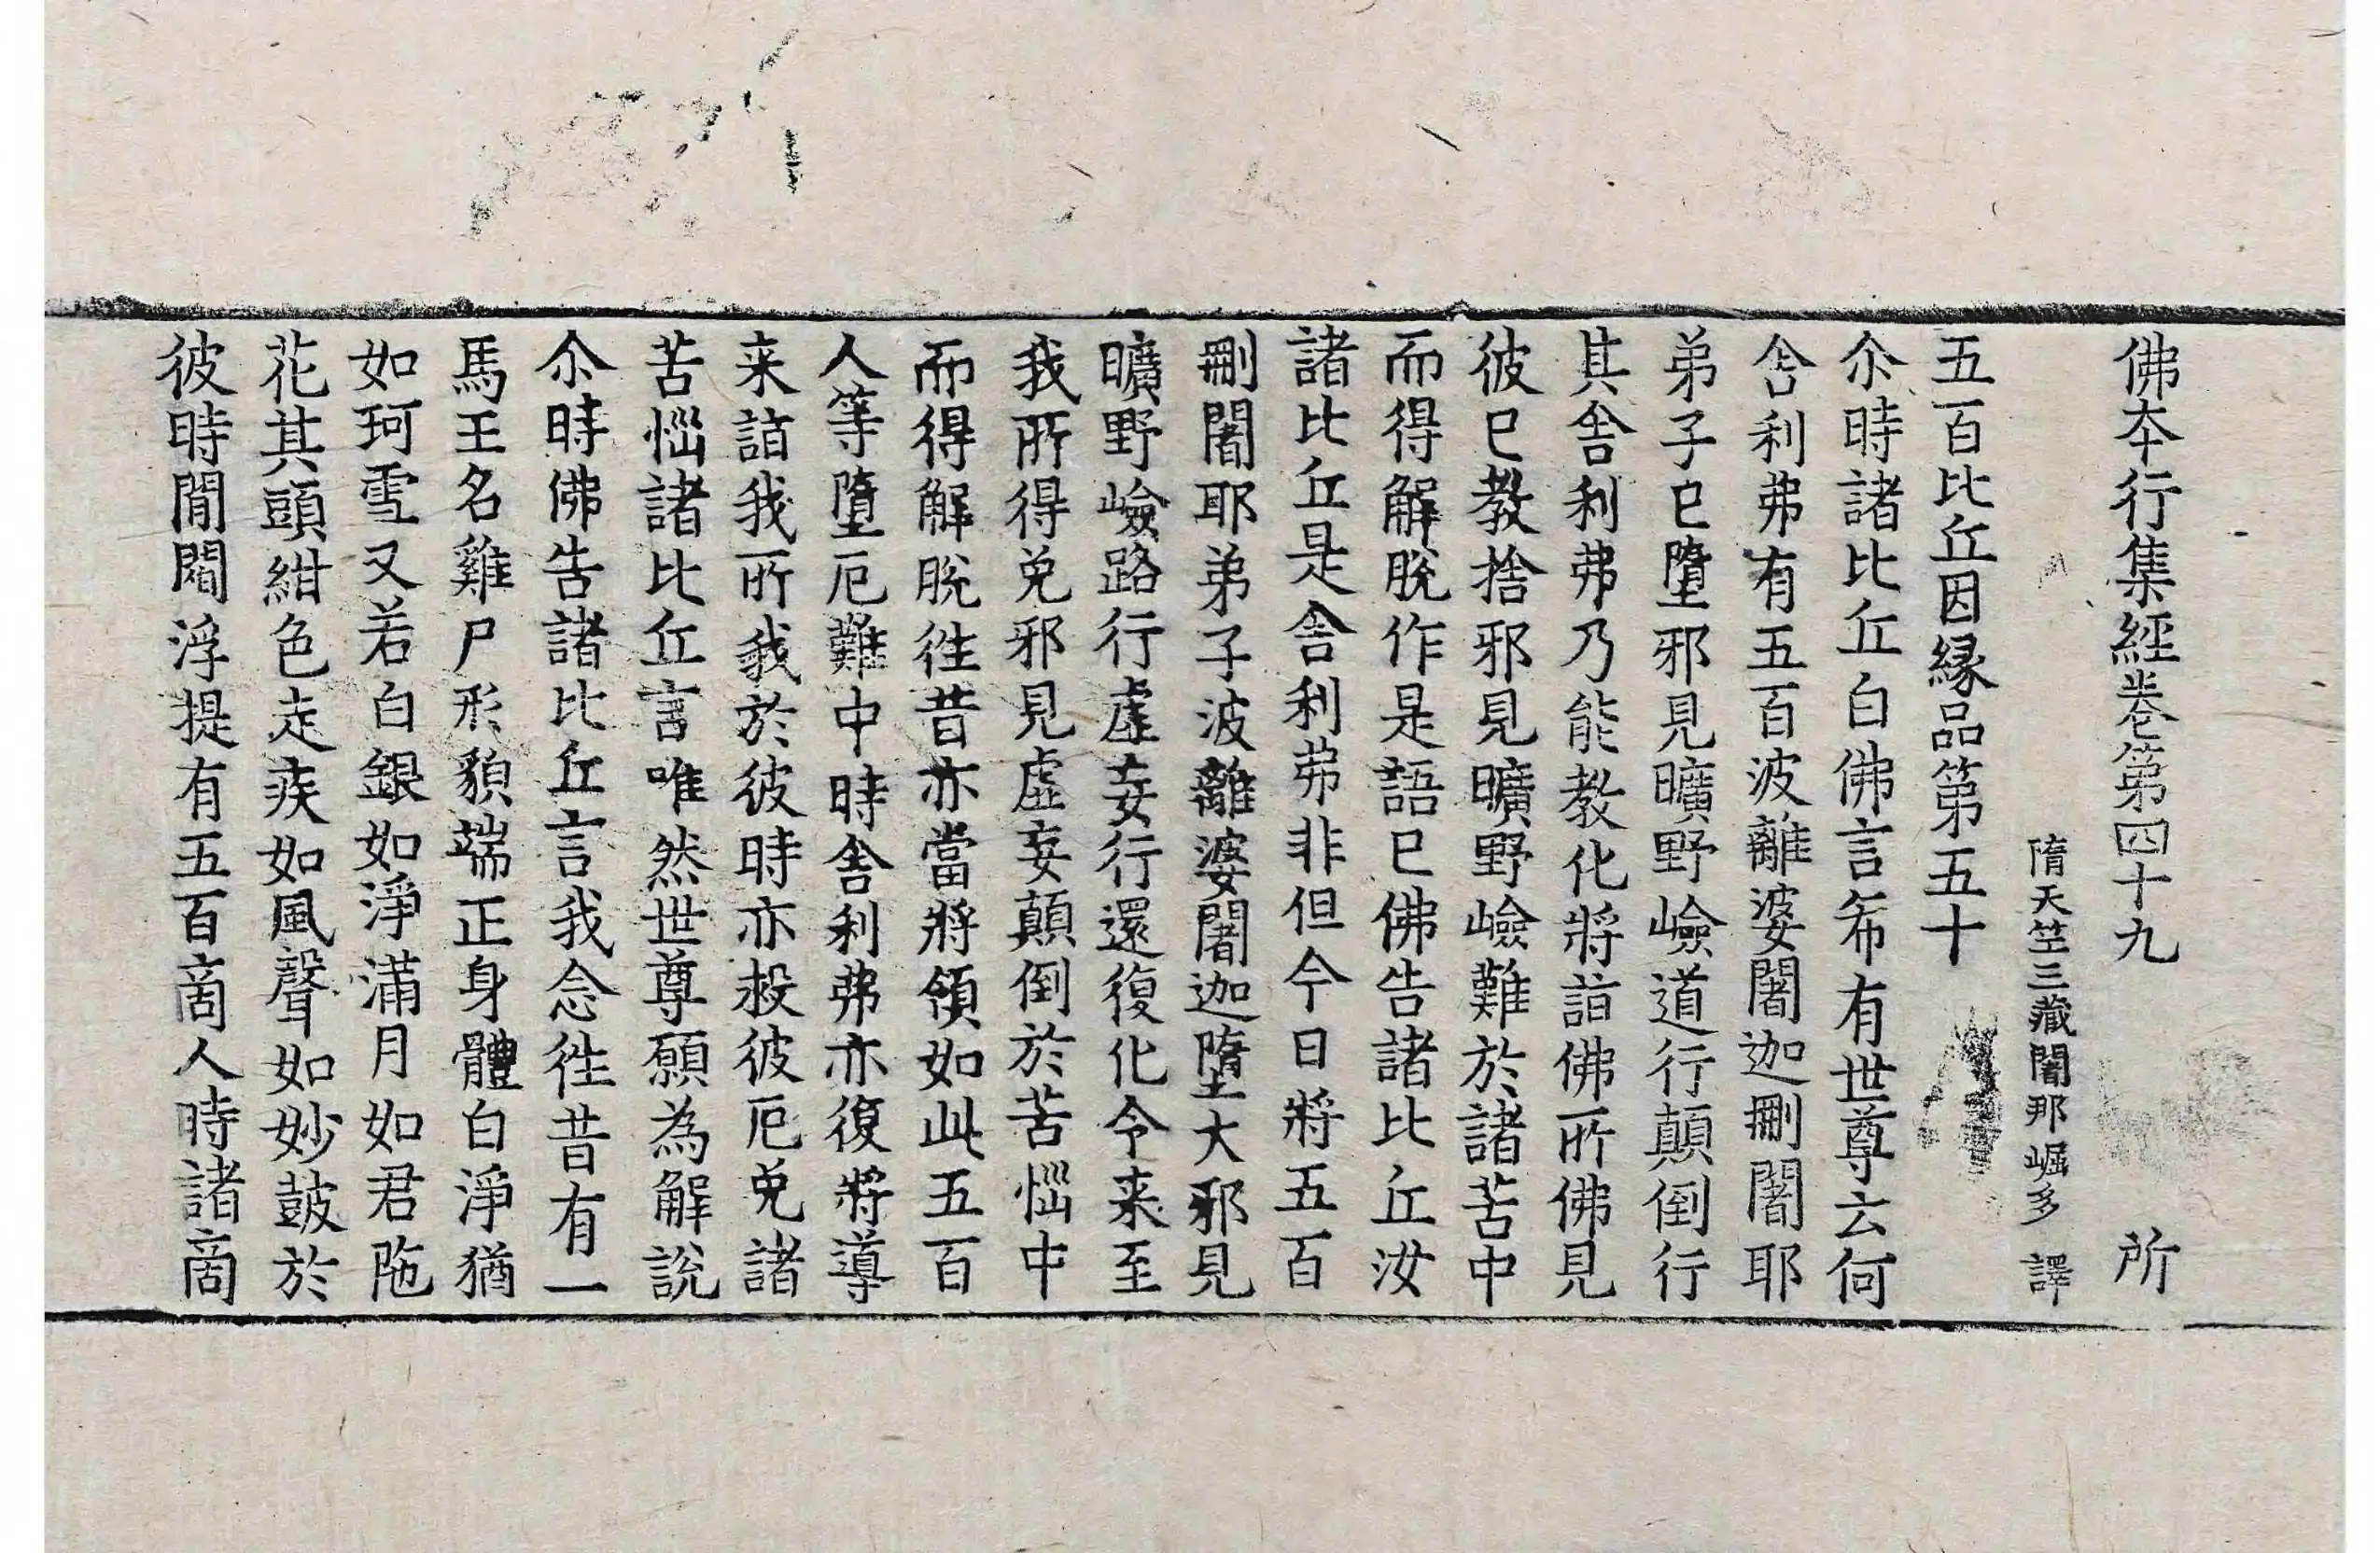 佛夲行集經卷第四十九 所
隋天竺三藏闍那崛多 譯
五百比丘因縁品第五十
尒時諸比丘白佛言希有世尊云何
舎利弗有五百波離婆闍迦刪闍耶
弟子已墮邪見曠野嶮道行顛倒行
其舎利弗乃能教化將詣佛所佛見
彼已教捨邪見曠野嶮難於諸苦中
而得解脫作是語已佛告諸比丘汝
諸比丘是舎利弗非但今日將五百
刪闍耶弟子波離婆闍迦墮大邪見
曠野嶮路行虛妄行還復化令来至
我所得免邪見虛妄顛倒於苦惱中
而得解脫徃昔亦當將領如此五百
人等墮厄難中時舎利弗亦復將導
来詣我所我於彼時亦救彼厄免諸
苦惱諸比丘言唯然世尊願為解說
尒時佛告諸比丘言我念徃昔有一
馬王名雞尸形貌端正身體白淨猶
如珂雪又若白銀如淨滿月如君陁
花其頭紺色走疾如風聲如妙鼓於
彼時間閻浮提有五百商人時諸商